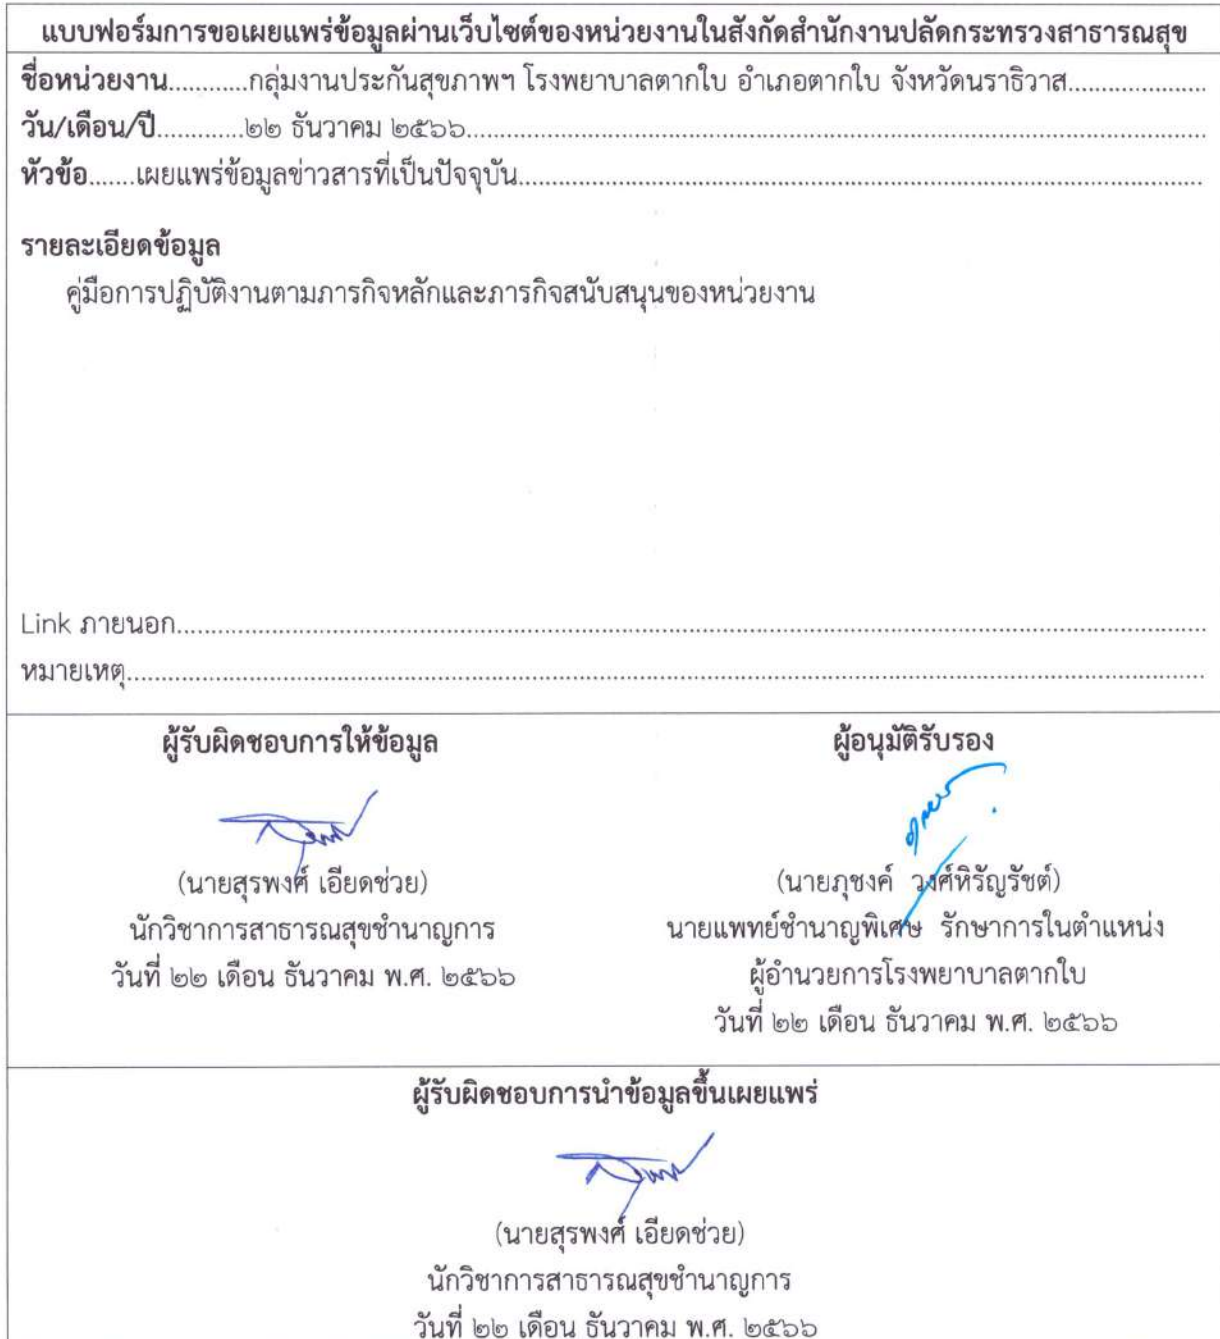 แบบฟอร์มการขอเผยแพร่ข้อมูลผ่านเว็บไซต์ของหน่วยงานในสังกัดสำนักงานปลัดกระทรวงสาธารณสุข
ชื่อหน่วยงาน............กลุ่มงานประกันสุขภาพฯ โรงพยาบาลตากใบ อำเภอตากใบ จังหวัดนราธิวาส.....................
วัน/เดือน/ปี.............๒๒ ธันวาคม ๒๕๖๖...............................................................................................................
หัวข้อ.......เผยแพร่ข้อมูลข่าวสารที่เป็นปัจจุบัน.......................................................................................................
รายละเอียดข้อมูล
คู่มือการปฏิบัติงานตามภารกิจหลักและภารกิจสนับสนุนของหน่วยงาน
Link ภายนอก...........................................................................................................................................................
หมายเหตุ..................................................................................................................................................................
ผู้รับผิดชอบการให้ข้อมูล
(นายสุรพงศ์ เอียดช่วย)
นักวิชาการสาธารณสุขชำนาญการ
วันที่ ๒๒ เดือน ธันวาคม พ.ศ. ๒๕๖๖
ผู้อนุมัติรับรอง
(นายภุชงค์ วงศ์หิรัญรัชต์)
นายแพทย์ชำนาญพิเศษ รักษาการในตำแหน่ง
ผู้อำนวยการโรงพยาบาลตากใบ
วันที่ ๒๒ เดือน ธันวาคม พ.ศ. ๒๕๖๖
ผู้รับผิดชอบการนำข้อมูลขึ้นเผยแพร่
(นายสุรพงศ์ เอียดช่วย)
นักวิชาการสาธารณสุขชำนาญการ
วันที่ ๒๒ เดือน ธันวาคม พ.ศ. ๒๕๖๖